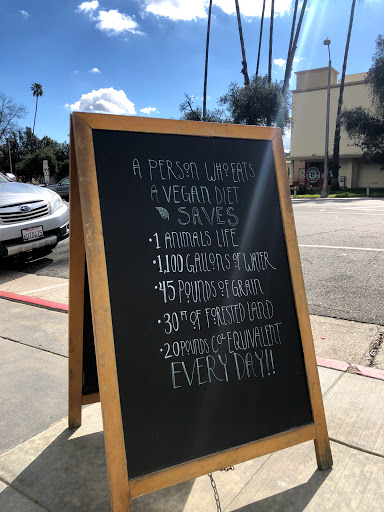 A PERSON WHO EATS
A VEGAN DIET
SAVES
• 1 ANIMALS LIFE
• 1,100 GALLONS OF WATER
• 45 POUNDS OF GRAIN
• 30 FT OF FORESTED LAND
• 20 POUNDS CO2 EQUIVALENT
EVERY DAY!!